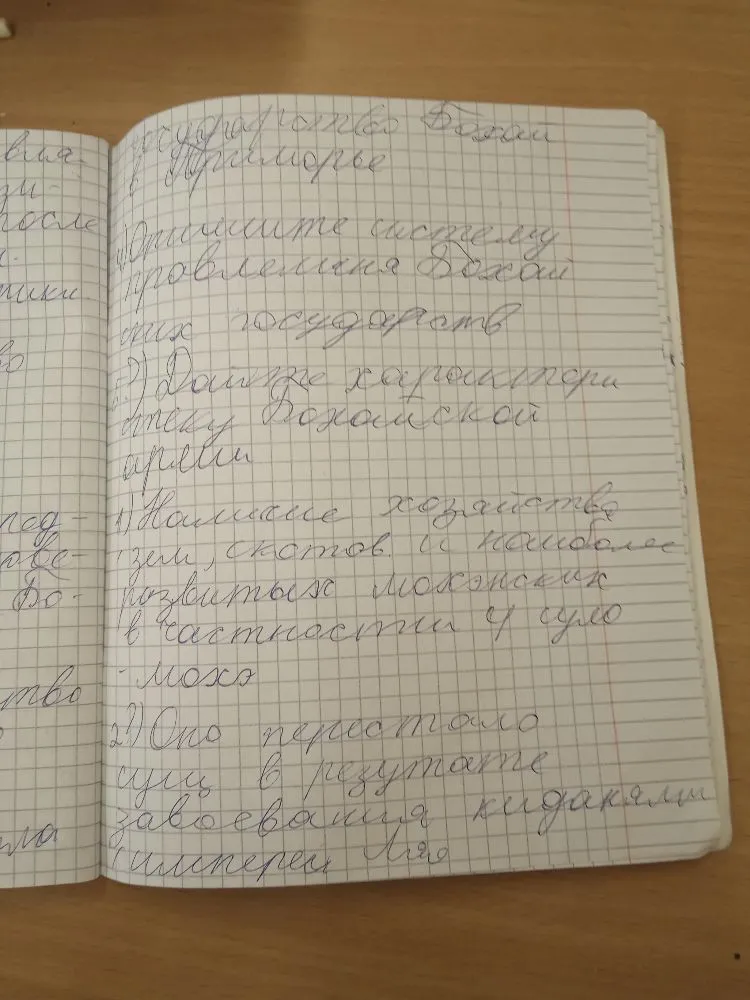 вля-
зи-
после
и.
тики.
во
под-
Бо-
ство
ла
государство Бохай
в Приморье
4) Опишите систему
провлемния Бохай
ских государств
5?) Дайте характери
стеку Бохайской
армии
1) Наличие хозяйства
зем, скотов. и наиболее
развитых мохэнских
в частностии у суло
- мохэ
2?) Оно перестало
сущ в резутате
завоевания киданями
империи Ляо